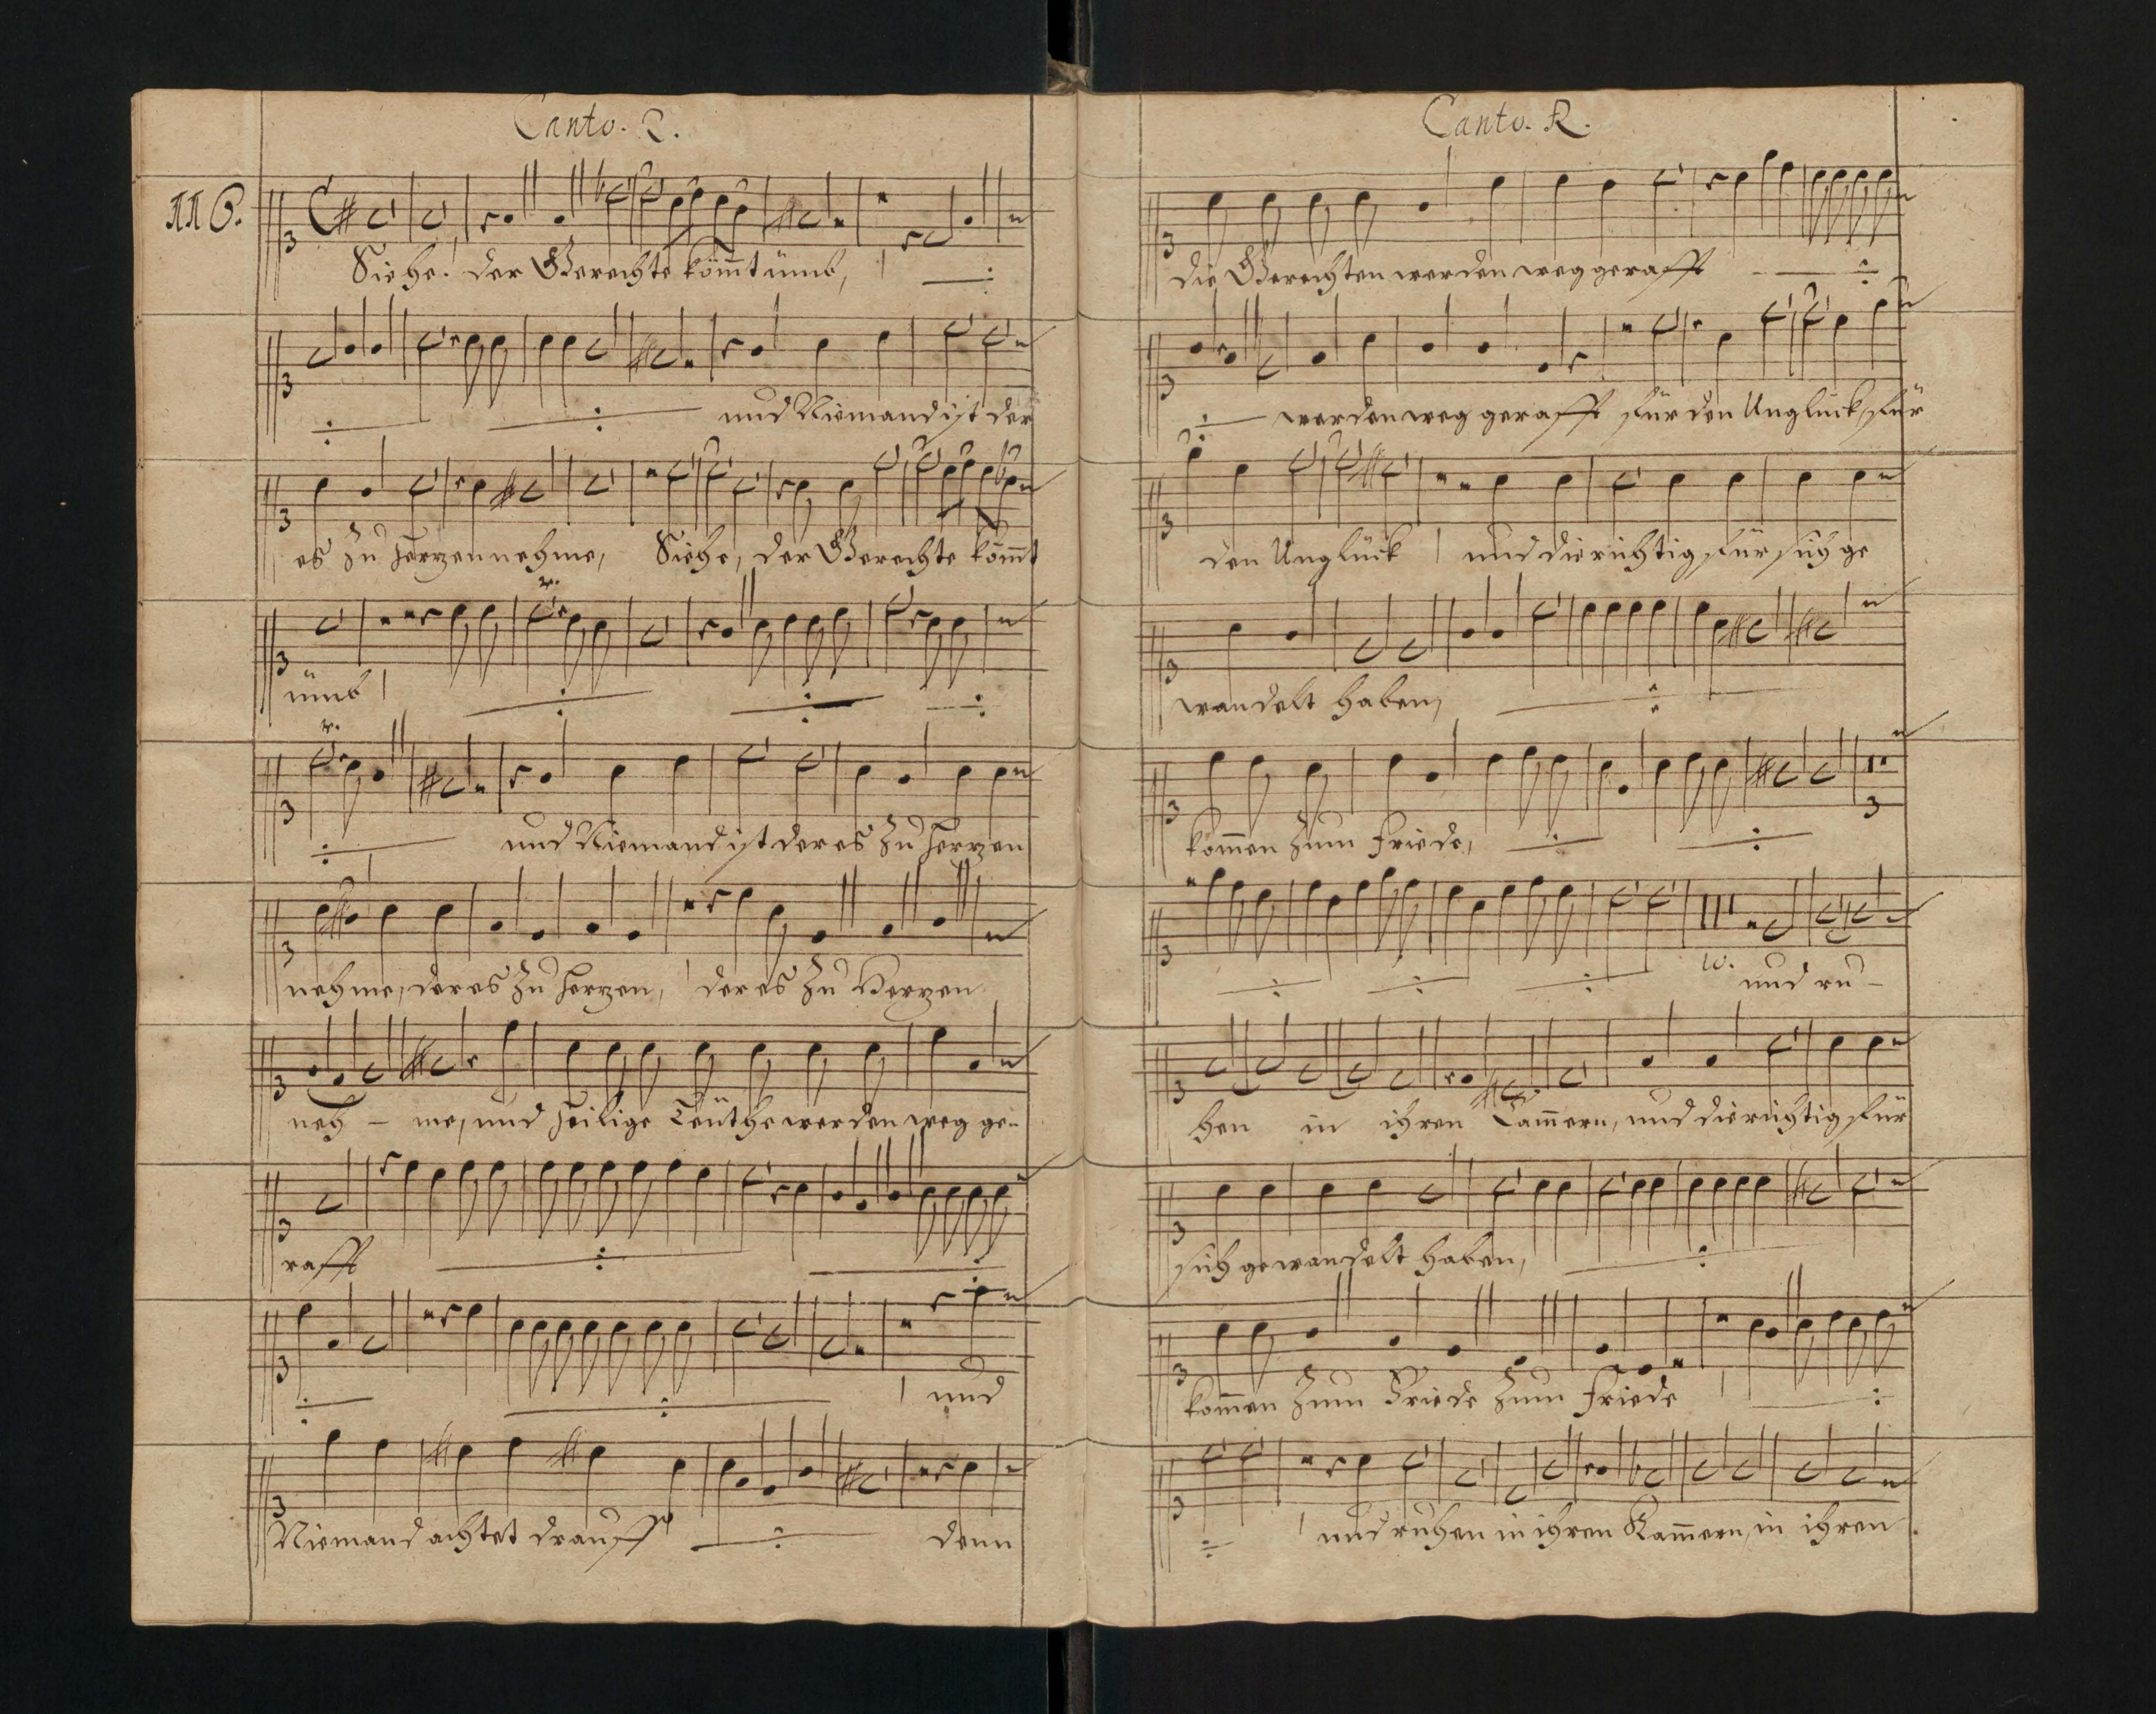 Canto. 2.
116.
Siehe! der Gerechte kömt ümb,
und Niemand ist der
es zu Herzen nehme, Siehe, der Gerechte kömt
ümb
und Niemand ist der es zu Herzen
nehme, der es zu Herzen, der es zu Herzen
neh - me, und heilige Leüthe werden weg ge-
rafft
und
Niemand achtet drauff denn
Canto. 2.
die Gerechten werden weg gerafft
werden weg gerafft für den Unglück, für
den Unglück und die richtig für sich ge
wandelt haben,
kom̄en zum Friede,
3
10. und ru -
hen in ihren Kam̄ern, und die richtig für
sich gewandelt haben,
kom̄en zum Friede zum Friede
und ruhen in ihren Kam̄ern, in ihren